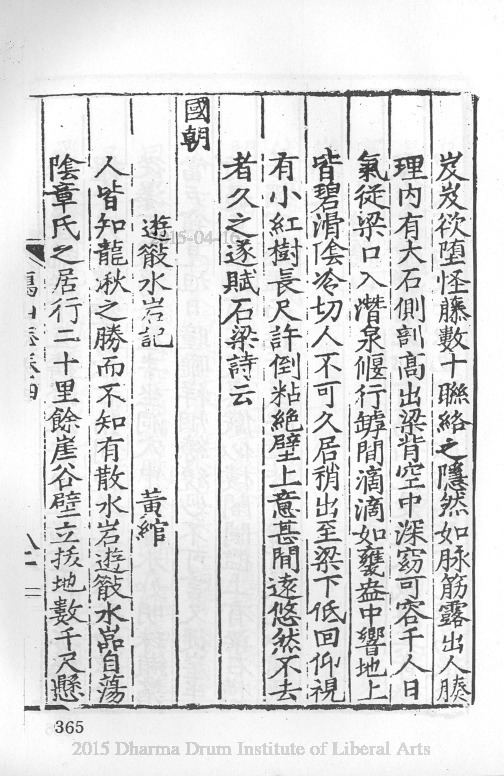 岌岌欲墮怪藤數十聯絡之隱然如脉筋露出人腠
理内有大石側剖高出梁背空中深窈可容千人日
氣從梁口入潛泉偃行罅間滴滴如甕盎中響地上
皆碧滑陰冷切人不可久居稍出至梁下低回仰視
有小紅樹長尺許倒粘絶壁上意甚閒遠悠然不去
者久之遂賦石梁詩云
國朝
遊散水岩記 黃綰
人皆知龍湫之勝而不知有散水岩遊散水嵓自蕩
陰章氏之居行二十里餘崖谷壁立拔地數千尺懸
卷四
365
2015 Dharma Drum Institute of Liberal Arts